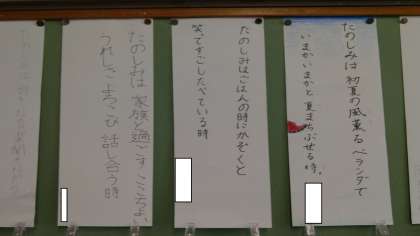 たのしみは 初夏の風薫る ベランダで
いまかいまかと 夏まちぶせる時。
たのしみはごはんの時にかぞくと
笑ってすごしたべている時
たのしみは 家族と過ごす こころよい
うれしさ よろこび 話し合う時